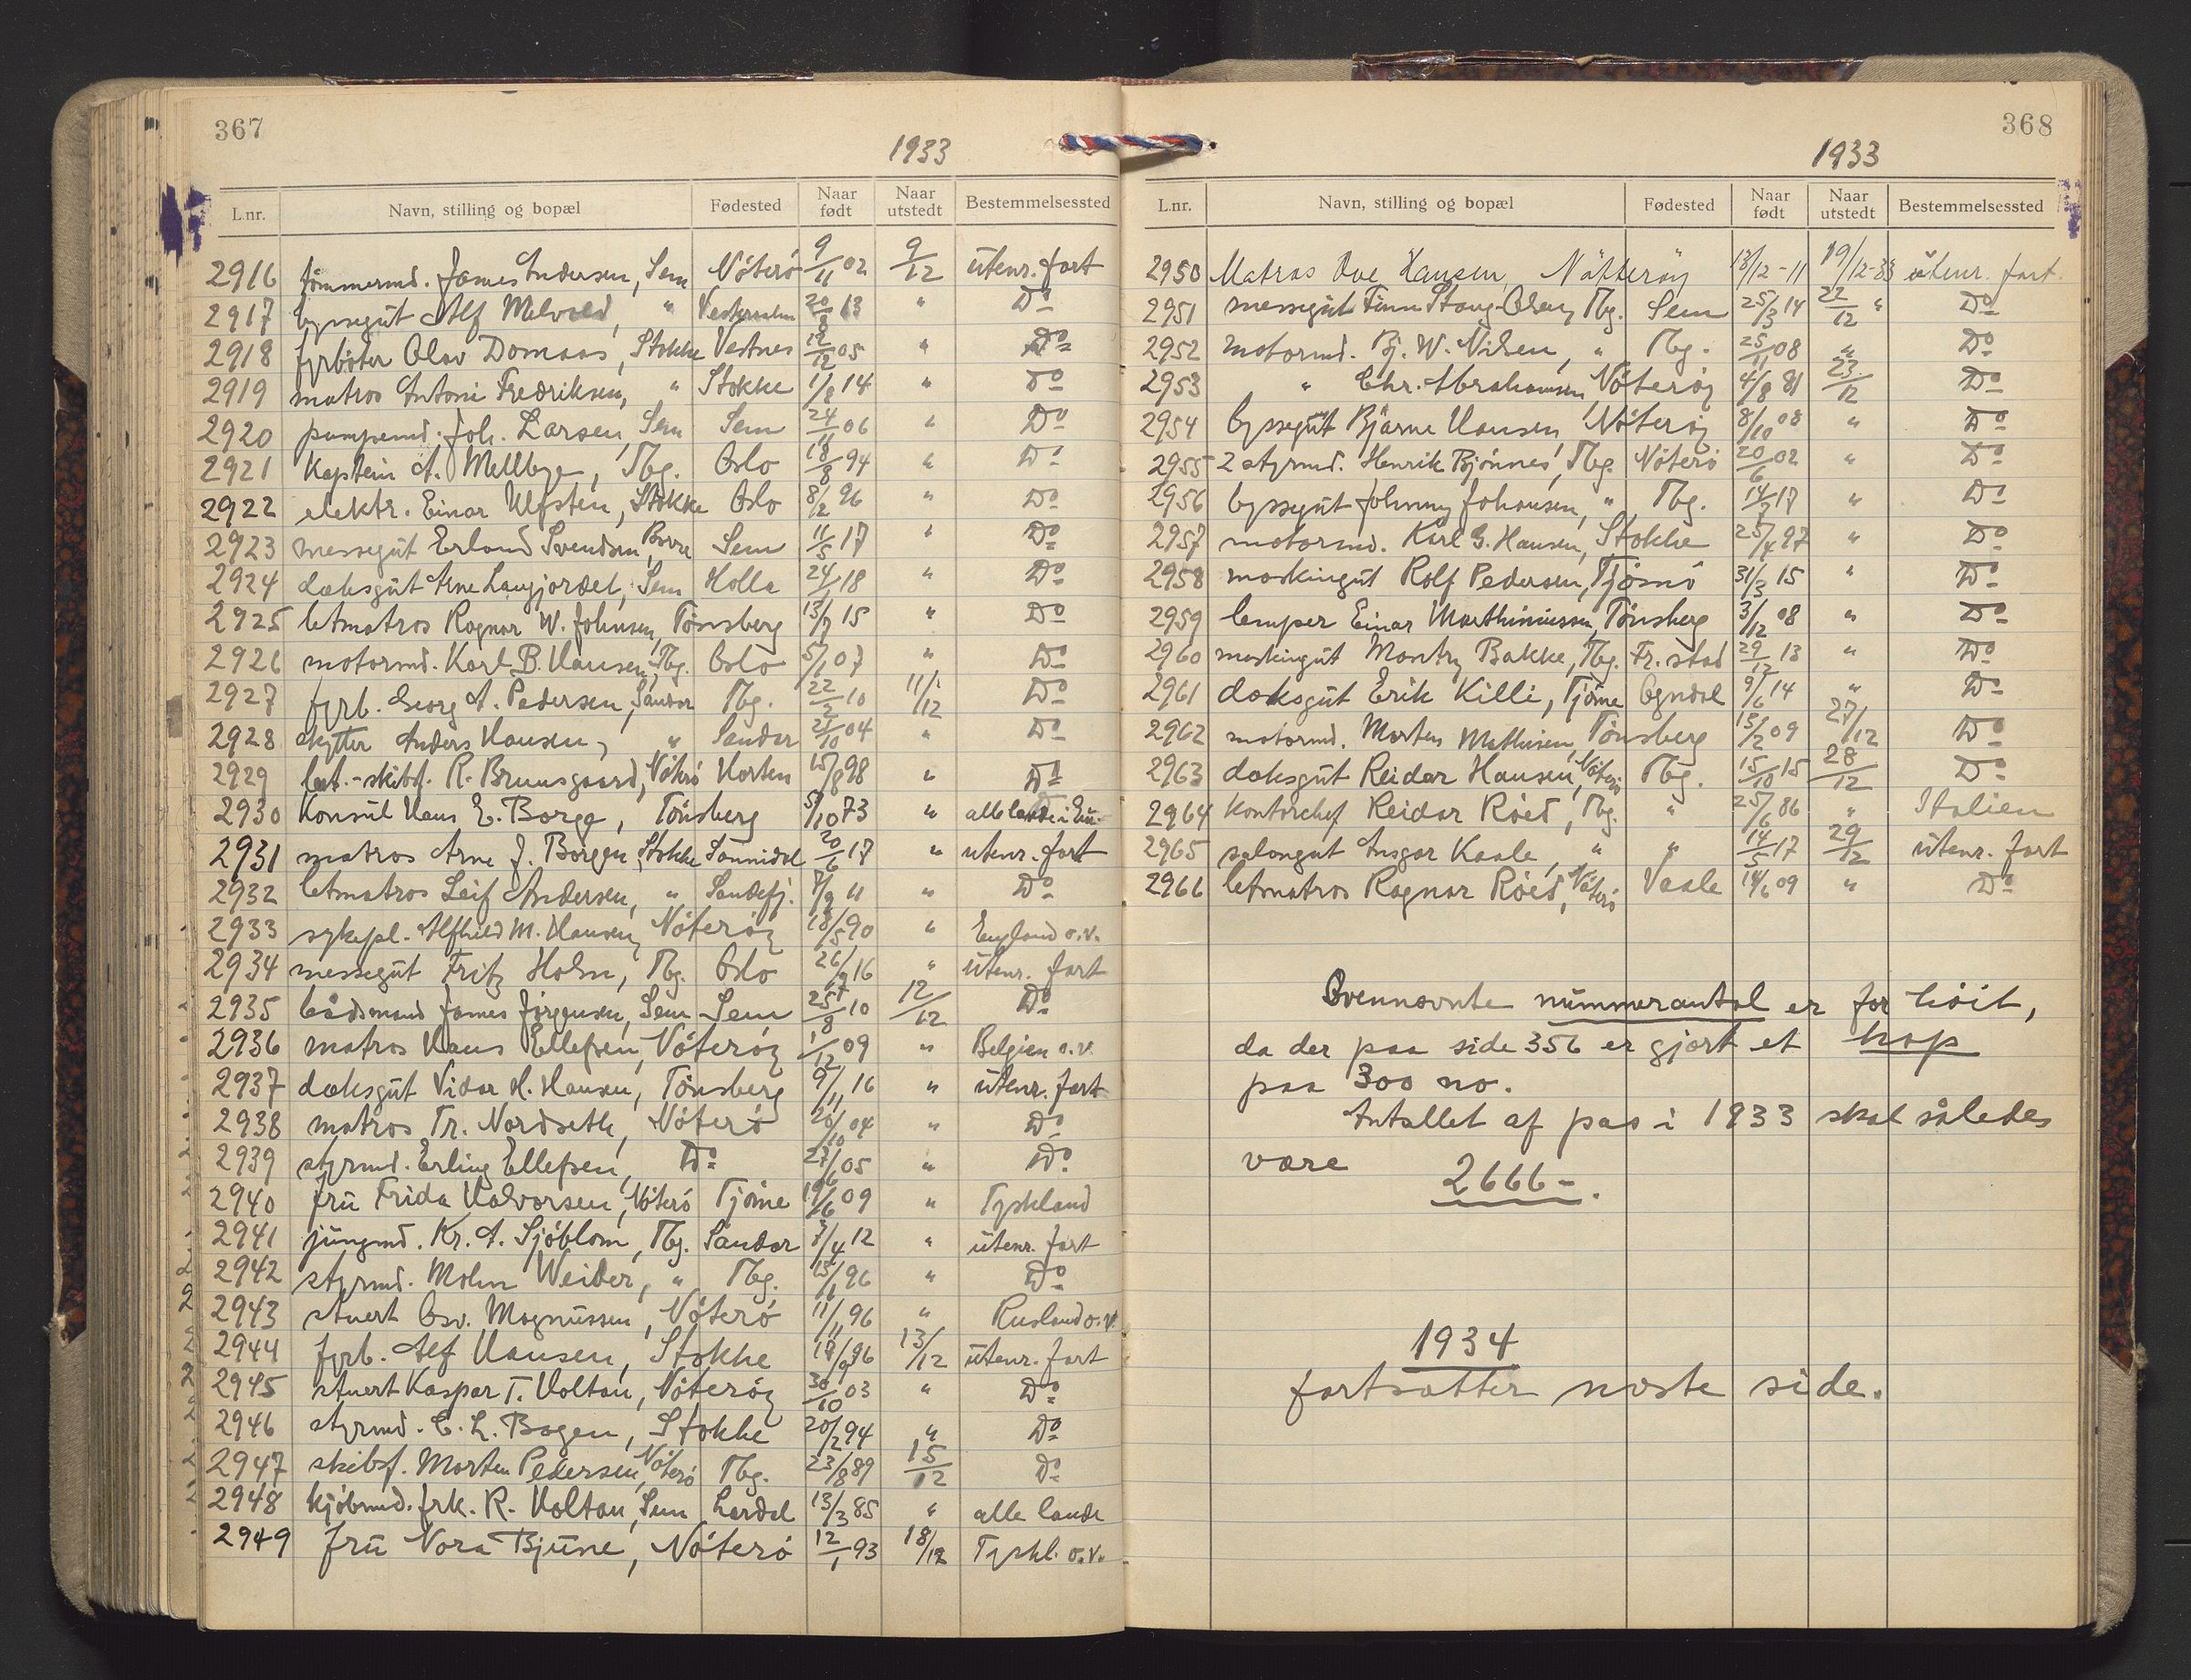 367
1933
L.nr. Navn, stilling og bopæl Fødested Naar født Naar utstedt Bestemmelsessted
2916 tömmermd. James Andersen, Sem Nöterö 9/11 02 9/12 utenr. fart
2917 byssegut Alf Melvold, " 20/8 13 " Do
2918 fyrböter Olav Domaas, Stokke Vestnes 12/12 05 " Do
2919 matros Antoni Fredriksen, " Stokke 1/8 14 " Do
2920 pumpemd. Joh. Larsen, Sem Sem 24/11 06 " Do
2921 Kaptein A. Mellbye, Tbg. Oslo 18/8 94 " Do
2922 elektr. Einar Ulfsten, Stokke Oslo 8/2 96 " Do
2923 messegut Erland Svendsen, Borre Sem 11/5 17 " Do
2924 dæksgut Arne Langjordet, Sem Holla 24/1 18 " Do
2925 letmatros Ragnar W. Johnsen, Tönsberg 13/7 15 " Do
2926 motormd. Karl B. Hansen, Tbg. Oslo 5/1 07 " Do
2927 fyrb. Georg A. Pedersen, Sandar Tbg. 22/2 10 11/12 Do
2928 skytter Anders Hansen, " Sandar 21/10 04 " Do
2929 R. Bruusgaard, Nöterö Horten 15/8 98 " Do
2930 Konsul Hans E. Borge, Tönsberg 5/10 73 " alle lande i Eur.
2931 matros Arne J. Borgen, Stokke Sannidal 20/6 17 " utenr. fart
2932 letmatros Leif Andersen, " Sandefj. 7/9 11 " Do
2933 sykepl. Alfhild M. Hansen, Nöteröy 18/5 90 " England o.v.
2934 messegut Fritz Holm, Tbg. Oslo 26/9 16 " utenr. fart
2935 bådsmand James Jörgensen, Sem Sem 25/8 10 12/12 Do
2936 matros Hans Ellefsen, Nöteröy 1/12 09 " Belgien o.v.
2937 dæksgut Vidar H. Hansen, Tönsberg 9/11 16 " utenr. fart
2938 matros Tr. Nordseth, Nöterö 26/10 04 " Do
2939 styrmd. Erling Ellefsen, Do 27/6 05 " Do
2940 fru Frida Halvorsen, Nöterö Tjöme 19/6 09 " Tyskland
2941 jungmd. Kr. A. Sjöblom, Tbg. Sandar 3/4 12 " utenr. fart
2942 styrmd. Mohn Weider, " Tbg. 15/1 96 " Do
2943 stuert Osv. Magnussen, Nöterö 11/11 96 " Rusland o.v.
2944 fyrb. Alf Hansen, Stokke 18/9 96 13/12 utenr. fart
2945 stuert Kaspar T. Holtan, Nöteröy 30/10 03 " Do
2946 styrmd. E. L. Bogen, Stokke 20/2 94 " Do
2947 skibsf. Morten Pedersen, Nöterö Tbg. 23/8 89 15/12 Do
2948 kjöbmd. frk. R. Holtan, Sem Lardal 13/3 85 " alle lande
2949 fru Nora Bjune, Nöterö 12/1 93 18/12 Tyskl. o.v.
368
1933
L.nr. Navn, stilling og bopæl Fødested Naar født Naar utstedt Bestemmelsessted
2950 Matros Ove Hansen, Nötteröy 13/12-11 19/12-33 utenr. fart.
2951 messegut Finn Stang-Olsen, Tbg. Sem 25/3 14 22/12 " Do
2952 motormd. Bj. W. Nilsen, " Tbg. 25/11 08 " Do
2953 " Chr. Abrahamsen, Nöteröy 4/8 81 23/12 Do
2954 byssegut Bjarne Hansen, Nöteröy 8/10 08 " Do
2955 2 styrmd. Henrik Bjönnes, Tbg. Nöterö 20/6 02 " Do
2956 byssegut Johnny Johansen, " Tbg. 14/7 17 " Do
2957 motormd. Karl G. Hansen, Stokke 25/4 97 " Do
2958 maskingut Rolf Pedersen, Tjömö 31/3 15 " Do
2959 lemper Einar Marthiniussen, Tönsberg 3/12 08 " Do
2960 maskingut Montry Bakke, Tbg. Fr.stad 29/12 13 " Do
2961 daksgut Erik Killi, Tjöme Ogndal 9/6 14 " Do
2962 motormd. Morten Mathisen, Tönsberg 13/2 09 27/12 Do
2963 daksgut Reidar Hansen, Nöterö Tbg. 15/10 15 28/12 Do
2964 Kontorchef Reidar Röed, Tbg. " 25/6 86 " Italien
2965 salongut Ansgar Kaale, " " 14/5 17 29/12 utenr. fart
2966 letmatros Ragnar Röed, Nöterö Vaale 14/6 09 " Do
Ovennævnte nummerantal er for höit,
da der paa side 356 er gjort et hop
paa 300 no.
Antallet af pas i 1933 skal således
være 2666-.
1934
fortsætter næste side.